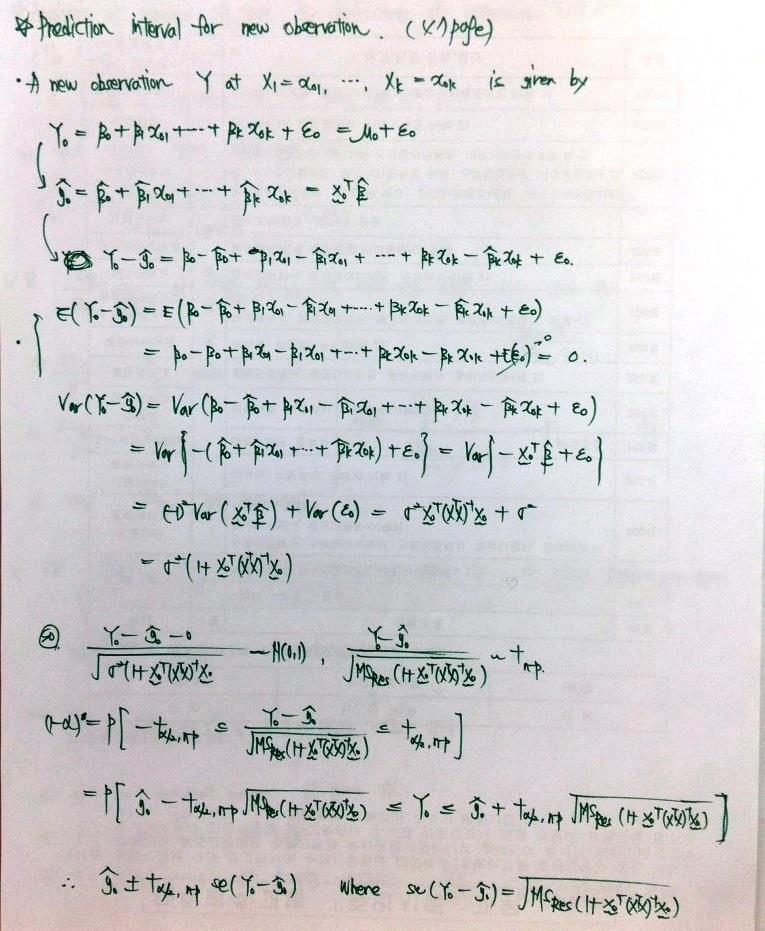 ☆ Prediction interval for new observation. (X1 page)
· A new observation Y at X₁ = x₀₁, ⋯, Xₖ = x₀ₖ is given by
Y₀ = β₀ + β₁x₀₁ + ⋯ + βₖx₀ₖ + ε₀ = μ₀ + ε₀
ŷ₀ = β̂₀ + β̂₁x₀₁ + ⋯ + β̂ₖx₀ₖ = x₀ᵀβ̂
Y₀ - ŷ₀ = β₀ - β̂₀ + β₁x₀₁ - β̂₁x₀₁ + ⋯ + βₖx₀ₖ - β̂ₖx₀ₖ + ε₀.
· E(Y₀ - ŷ₀) = E(β₀ - β̂₀ + β₁x₀₁ - β̂₁x₀₁ + ⋯ + βₖx₀ₖ - β̂ₖx₀ₖ + ε₀)
= β₀ - β₀ + β₁x₀₁ - β₁x₀₁ + ⋯ + βₖx₀ₖ - βₖx₀ₖ + E(ε₀)→0 = 0.
Var(Y₀ - ŷ₀) = Var(β₀ - β̂₀ + β₁x₀₁ - β̂₁x₀₁ + ⋯ + βₖx₀ₖ - β̂ₖx₀ₖ + ε₀)
= Var{-(β̂₀ + β̂₁x₀₁ + ⋯ + β̂ₖx₀ₖ) + ε₀} = Var{-x₀ᵀβ̂ + ε₀}
= (-1)²Var(x₀ᵀβ̂) + Var(ε₀) = σ²x₀ᵀ(XᵀX)⁻¹x₀ + σ²
= σ²(1 + x₀ᵀ(XᵀX)⁻¹x₀)
so (Y₀ - ŷ₀ - 0) / √(σ²(1 + x₀ᵀ(XᵀX)⁻¹x₀ ~ N(0,1), (Y₀ - ŷ₀) / √(MS_Res(1 + x₀ᵀ(XᵀX)⁻¹x₀)) ~ t_n-p.
(1-α) = P[-t_α/2,n-p ≤ (Y₀ - ŷ₀) / √(MS_Res(1 + x₀ᵀ(XᵀX)⁻¹x₀)) ≤ t_α/2,n-p]
= P[ŷ₀ - t_α/2,n-p √(MS_Res(1 + x₀ᵀ(XᵀX)⁻¹x₀)) ≤ Y₀ ≤ ŷ₀ + t_α/2,n-p √(MS_Res(1 + x₀ᵀ(XᵀX)⁻¹x₀))]
∴ ŷ₀ ± t_α/2,n-p se(Y₀ - ŷ₀) where se(Y₀ - ŷ₀) = √(MS_Res(1 + x₀ᵀ(XᵀX)⁻¹x₀))